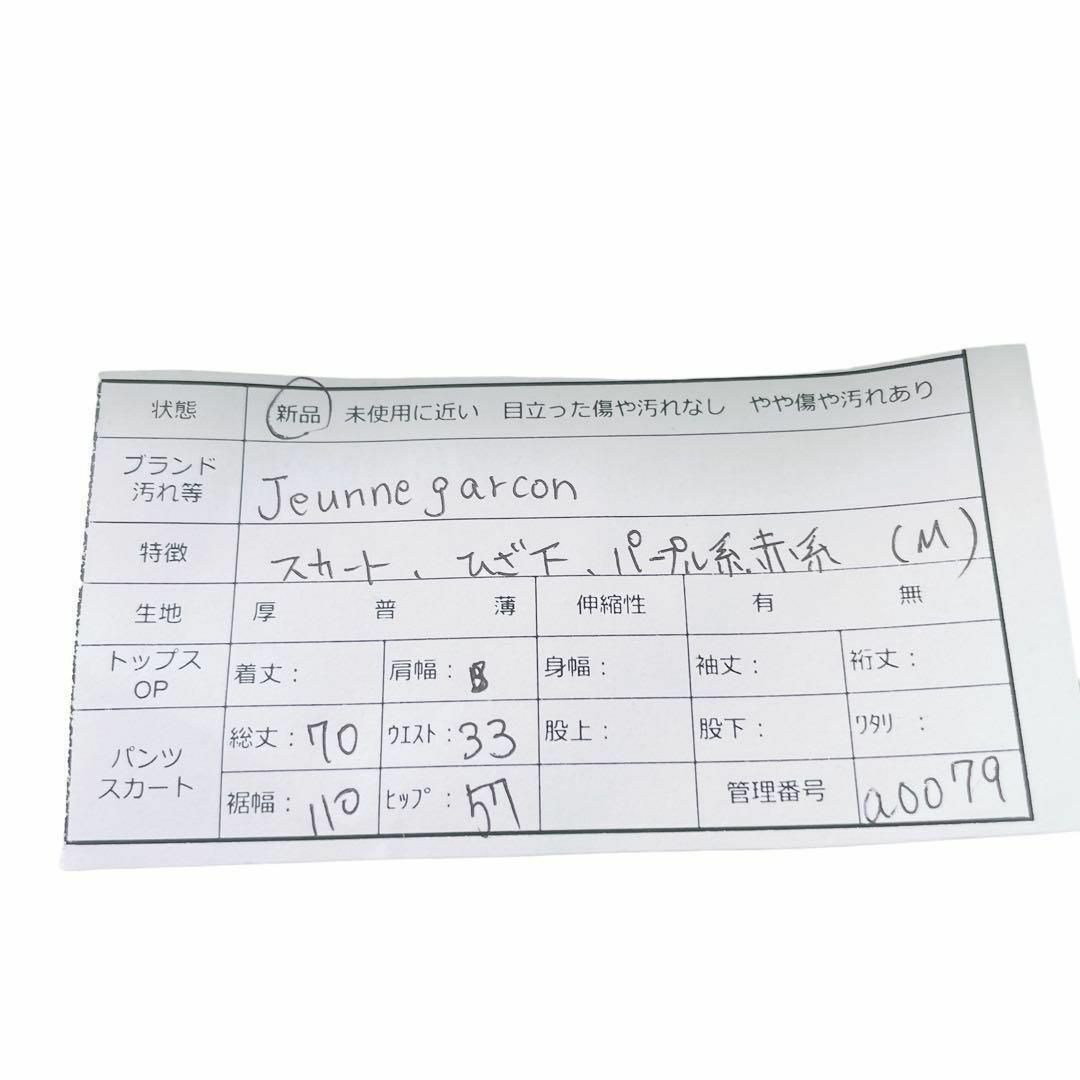 状態 新品 未使用に近い 目立った傷や汚れなし やや傷や汚れあり
ブランド
汚れ等 Jeunne garcon
特徴 スカート、ひざ下、パープル系、赤系 (M)
生地 厚 普 薄 伸縮性 有 無
トップス
OP 着丈: 肩幅: 身幅: 袖丈: 裄丈:
パンツ
スカート 総丈:70 ウエスト:33 股上: 股下: ワタリ :
裾幅:110 ヒップ:57 管理番号 a0079